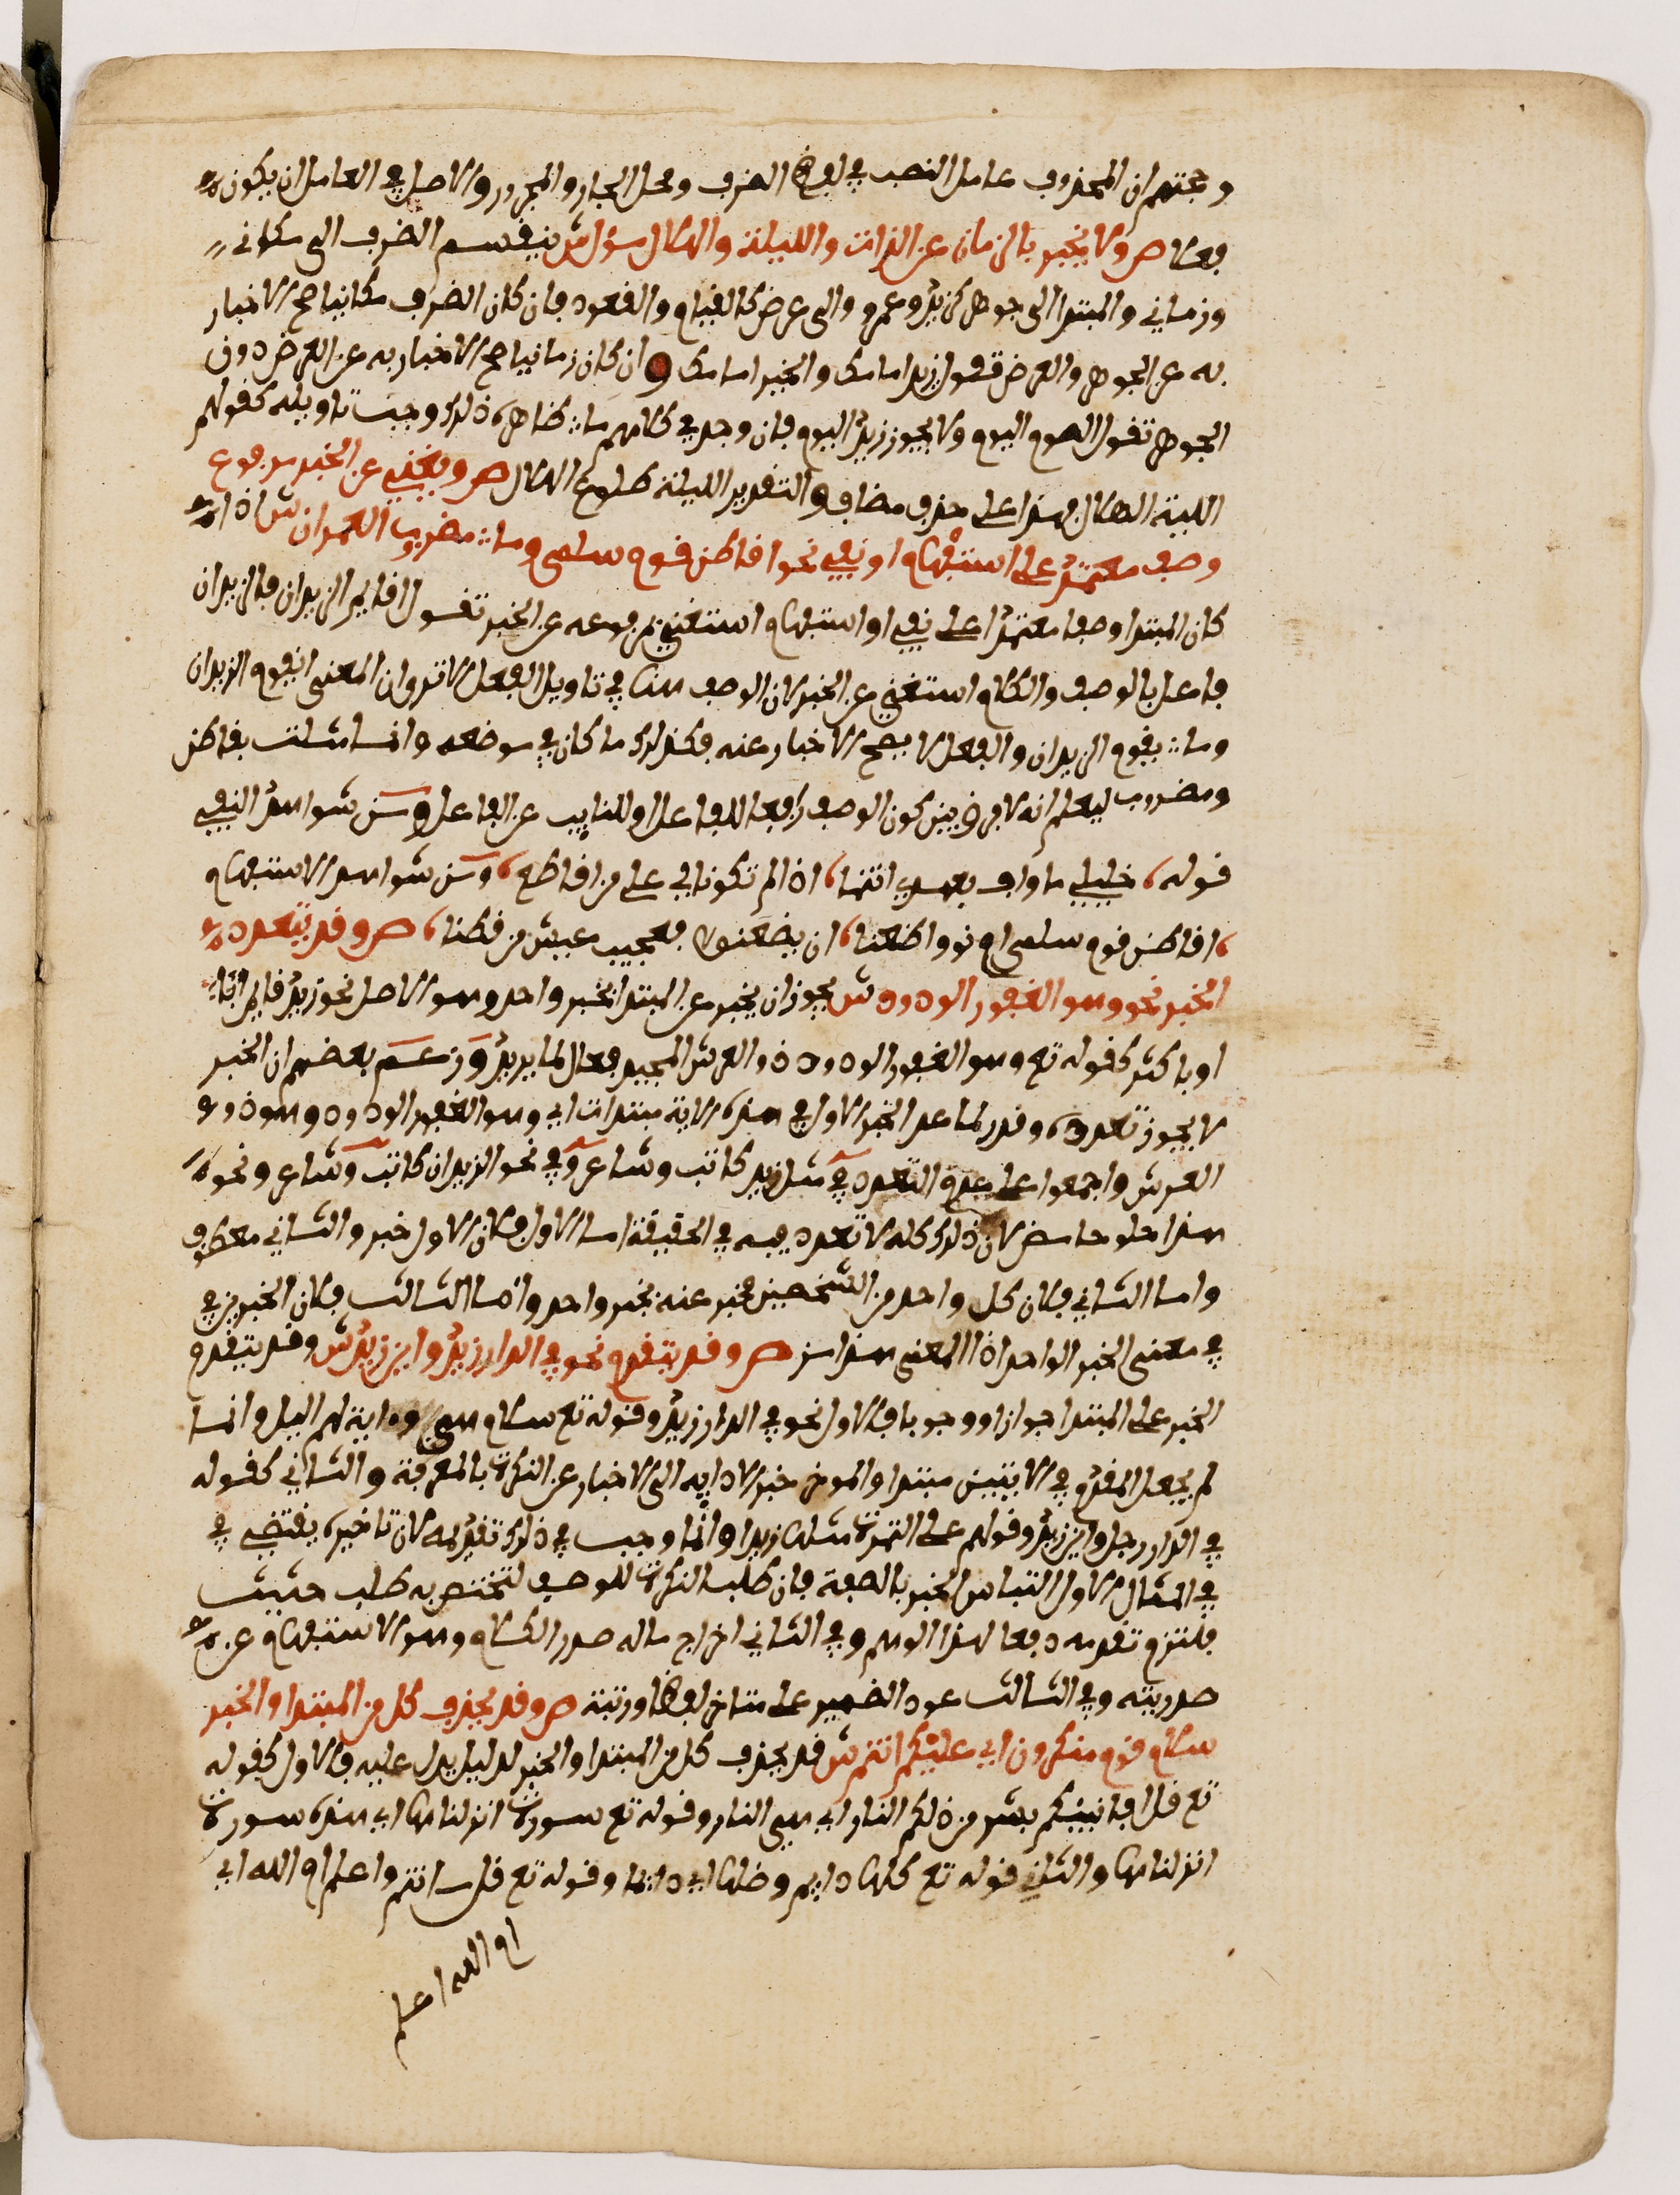 وحجتهم ان المحذوف عامل النصب في لفظ الضرف ومحل الجار والمجرور والاصل في العامل ان يكون
فعلا ص ولا يخبر بالزمان عن الذات والليلة والهلال مؤل ش ينقسم الضرف الى مكاني
وزماني والمبتدا الى جوهر كزيد وعمرو والى عرض كالقيام والقعود فان كان الضرف مكانيا صح الاخبار
به عن الجوهر والعرض فتقول زيد امامك والخير امامك وان كان زمانيا صح الاخبار به عن العرض دون
الجوهر تقول الصوم اليوم ولا يجوز زيد اليوم فان وجد في كلامهم ما ضاهر ذلك وجب تاويله كقولهم
الليلة الهلال فهذا على حذف مضاف والتقدير الليلة طلوع الهلال ص ويغني عن الخبر مرفوع
وصف معتمد على استفهام او نفي نحو اقاطن قوم سلمى وما مضروب العمران ش اذا
كان المبتدا وصفا معتمدا على نفي او استفهام استغنى بمرفوعه عن الخبر تقول اقايم الزيدان فالزيدان
فاعل بالوصف والكلام استغنى عن الخبر لان الوصف هنا في تاويل الفعل الا ترى ان المعنى ايقوم الزيدان
وما يقوم الزيدان والفعل لا يصح الاخبار عنه فكذلك ما كان في موضعه وانما مثلت بقاطن
ومضروب ليعلم انه لا فرق بين كون الوصف رافعا للفاعل او للنايب عن الفاعل ومن شواهد النفي
قوله خليلي ما واف بعهدي انتما اذا لم تكونا لي على من اقاطع ومن شواهد الاستفهام
اقاطن قوم سلمى ام نووا ضعنا ان يضعنوا فعجيب عيش من قطنا ص وقد يتعدد
الخبر نحو وهو الغفور الودود ش يجوز ان يخبر عن المبتدا بخبر واحد وهو الاصل نحو زيد قايم
او باكثر كقوله تع وهو الغفور الودود ذو العرش المجيد فعال لما يريد وزعم بعضهم ان الخبر
لا يجوز تعدده وقدر لما عدا الخبر الاول في هذه الاية مبتدات اي وهو الغفور الودود وهو ذو
العرش واجمعوا على عدم التعدد في مثل زيد كاتب وشاعر وفي نحو الزيدان كاتب وشاعر ونحو
هذا حلو حامض لان ذلك كله لا تعدد فيه في الحقيقة اما الاول فلان الاول خبر والثاني معطوف
واما الثاني فلان كل واحد من الشخصين مخبر عنه بخبر واحد واما الثالث فلان الخبرين في
في معنى الخبر الواحد اذ المعنى هذا مز ص وقد يتقدم نحو في الدار زيد واين زيد ش وقد يتقدم
الخبر على المبتدا جوازا ووجوبا فالاول نحو في الدار زيد وقوله تع سلام هي واية لهم اليل وانما
لم يجعل المقدم في الايتين مبتدا والموخر خبر لادايه الى الاخبار عن النكرة بالمعرفة والثاني كقوله
في الدار رجل واين زيد وقولهم على التمرة مثلها زبدا وانما وجب في ذلك تقديمه لان تاخيره يقتضي في
في المثال الاول التباس الخبر بالصفة فان طلب النكرة للوصف لتختص به طلب حثيث
فالتزم تقديمه دفعا لهذا الوهم وفي الثاني اخراج ماله صدر الكلام وهو الاستفهام عن
صدريته وفي الثالث عود الضمير على متاخر لفظا ورتبة ص وقد يحذف كل من المبتدا والخبر
سلام قوم منكرون اي عليكم انتم ش قد يحذف كل من المبتدا والخبر لدليل يدل عليه فالاول كقوله
تع قل افانبيكم بشر من ذلكم النار اي هي النار وقوله تع سورة انزلناها اي هذه سورة
انزلناها والثاني قوله تع اكلها دايم وظلها اي دايم وقوله تع قل انتم اعلم ام الله اي
ام الله اعلم